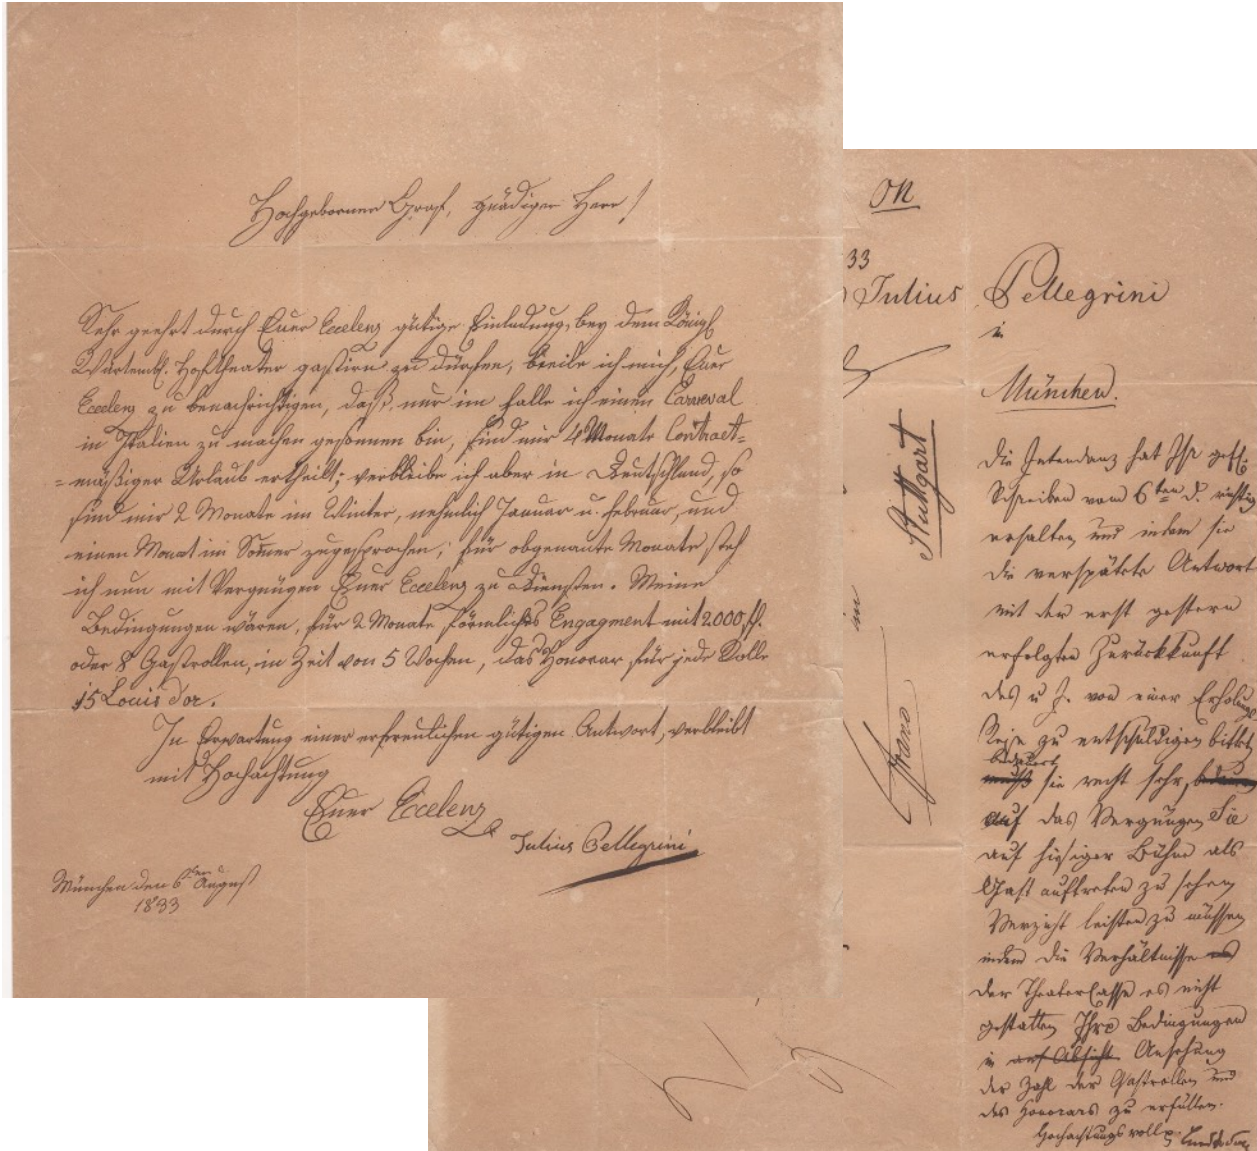 Hochgeborner Graf, gnädiger Herr!
Sehr geehrt durch Euer Excelenz gütige Einladung, bey dem Königl.
Würtemb. Hoftheater gastiren zu dürfen, beeile ich mich, Euer
Excelenz zu benachrichtigen, daß nur im Falle ich einen Carneval
in Italien zu machen gesonnen bin, sind mir 4 Monate Contract=
=mäßiger Urlaub ertheilt; verbleibe ich aber in Deutschland, so
sind mir 2 Monate im Winter, nehmlich Januar u. Februar, und
einen Monat im Somer zugesprochen; für obgenante Monate steh
ich nun mit Vergnügen Euer Excelenz zu Diensten. Meine
Bedingungen wären, für 2 Monate förmliches Engagment mit 2000 fl.
oder 8 Gastrollen, in Zeit von 5 Wochen, das Honorar für jede Rolle
15 Louis d'or.
In Erwartung einer erfreulichen gütigen Antwort, verbleibt
mit Hochachtung
Euer Excelenz
Julius Pellegrini
München den 6ten August
1833
33
Julius Pellegrini
in
München.
Die Intendanz hat Ihr gefl.
Schreiben vom 6ten d. richtig
erhalten, und indem sie
die verspätete Antwort
mit der erst gestern
erfolgten Zurückkunft
des von einer Erholungs
Reise zu entschuldigen bittet,
bedauert
muß sie recht sehr,
auf das Vergnügen Sie
auf hiesiger Bühne als
Gast auftreten zu sehen
Verzicht leisten zu müssen
indem die Verhältnisse
der Theater Casse es nicht
gestatten Ihre Bedingungen
in auf Absicht Ansehung
der Zahl der Gastrollen und
des Honorars zu erfüllen.
Hochachtungsvoll
Stuttgart
in